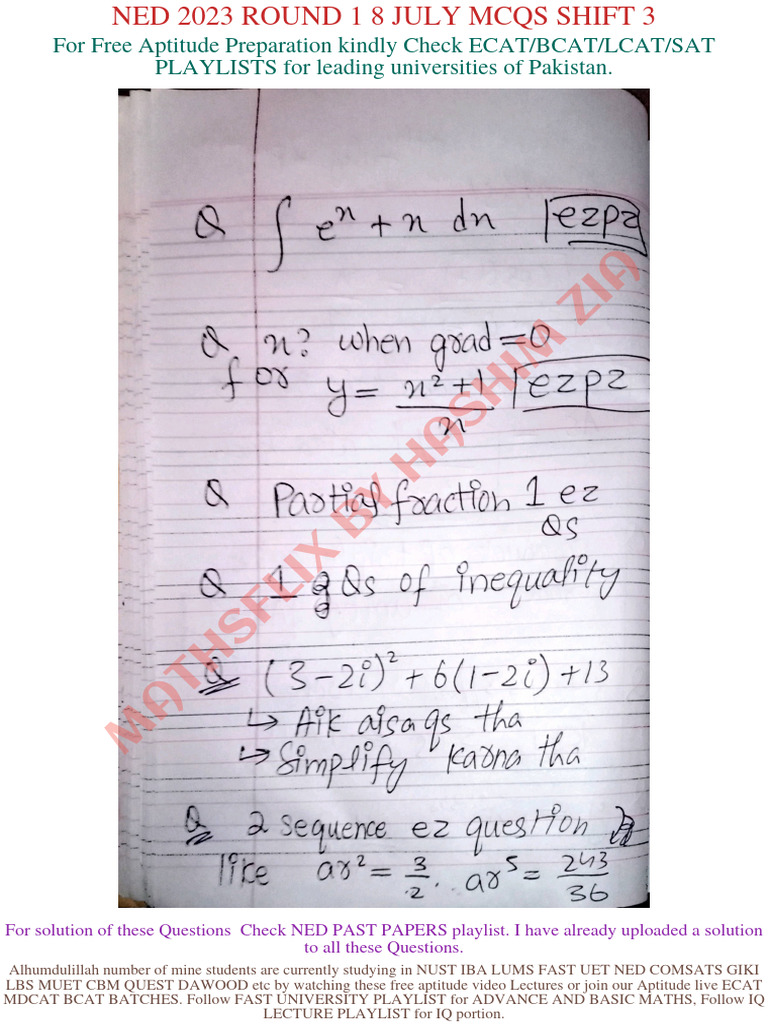 NED 2023 ROUND 1 8 JULY MCQS SHIFT 3
For Free Aptitude Preparation kindly Check ECAT/BCAT/LCAT/SAT
PLAYLISTS for leading universities of Pakistan.
Q ∫ eˣ + x dx ezpz
Q x? when grad = 0
for y = (x² + 1)/x ezpz
Q Partial fraction 1 ez
Qs
Q 1 2 Qs of inequality
Q (3 - 2i)² + 6(1 - 2i) + 13
↳ Aik aisa qs tha
↳ Simplify karna tha
Q 2 sequence ez question
like ar² = 3/2 . ar⁵ = 243/36
MATHSFLIX BY HASHIM ZIA
For solution of these Questions Check NED PAST PAPERS playlist. I have already uploaded a solution
to all these Questions.
Alhumdulillah number of mine students are currently studying in NUST IBA LUMS FAST UET NED COMSATS GIKI
LBS MUET CBM QUEST DAWOOD etc by watching these free aptitude video Lectures or join our Aptitude live ECAT
MDCAT BCAT BATCHES. Follow FAST UNIVERSITY PLAYLIST for ADVANCE AND BASIC MATHS, Follow IQ
LECTURE PLAYLIST for IQ portion.